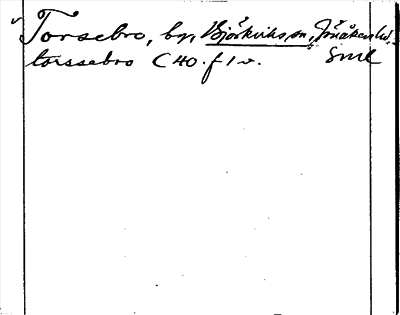 Torsebro, by, Björkviks sn, Jönåkers hd.
torssebro C 40. f 1 v. Sml